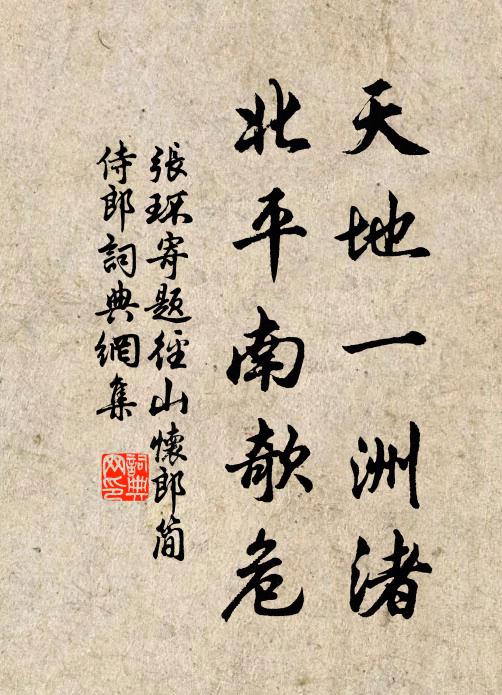 天地一洲渚
北平南欹危
張环寄題徑山懷郎簡
侍郎詞典網集
詞典网印